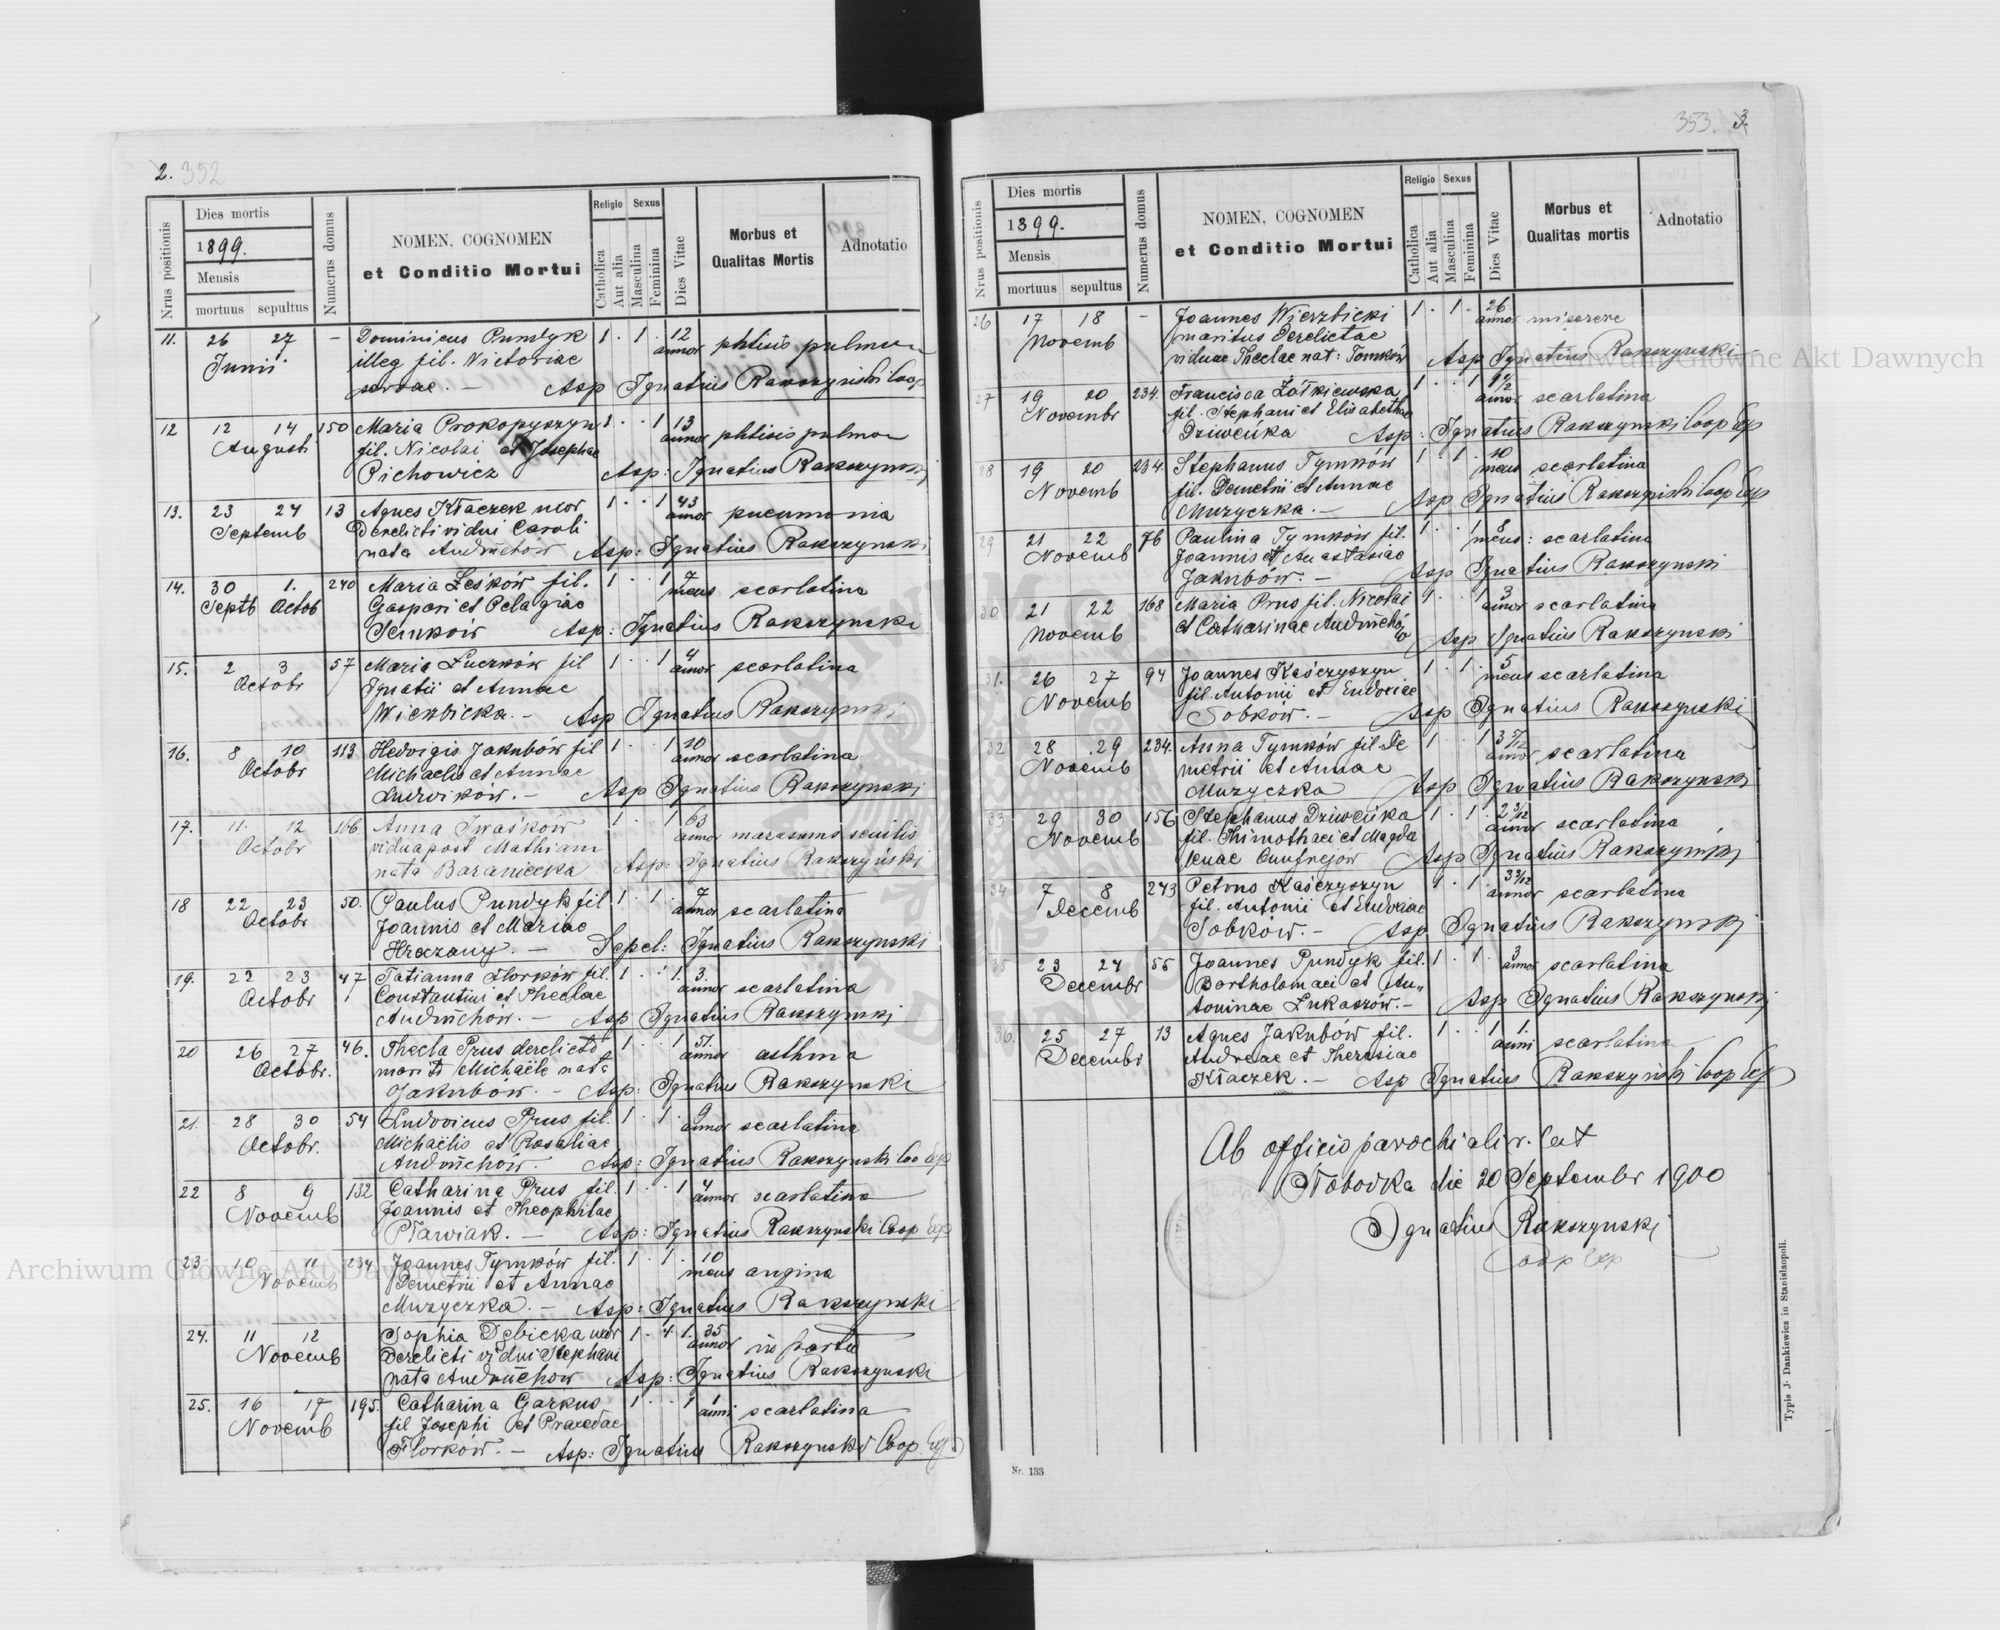 2. 352
Nrus positionis
Dies mortis
1899.
Mensis
mortuus sepultus
Numerus domus
NOMEN, COGNOMEN
et Conditio Mortui
Religio Sexus
Catholica
Aut alia
Masculina
Feminina
Dies Vitae
Morbus et
Qualitas Mortis
Adnotatio
11. 26 27 — Dominicus Pundyk 1 . 1 . 12
Junii illeg fil. Victoriae annor phtisis pulmon
servae. — Asp Ignatius Rakszynski Coop
12 12 14 150 Maria Prokopyszyn 1 . . 1 13
Augusti fil. Nicolai et Josephae annor phtisis pulmon
Pichowicz Asp: Ignatius Rakszynski
13. 23 24 13 Agnes Kłaczek uxor 1 . . 1 43
Septemb Derelicti vidui Caroli annor pneumonia
nata Andruchów Asp: Ignatius Rakszynski
14. 30 1. 240 Maria Leśków fil. 1 . . 1 7
Septb Octob Gaspari et Pelagiae mens scarlatina
Semków Asp: Ignatius Rakszynski
15. 2 3 57 Maria Luczków fil 1 . . 1 4
Octobr Ignatii et Annae annor scarlatina
Wierbicka. — Asp Ignatius Rakszynski
16. 8 10 113 Hedvigis Jakubów fil 1 . . 1 10
Octobr Michaelis et Annae annor scarlatina
Ludvików. — Asp Ignatius Rakszynski
17. 11. 12 166 Anna Iwaśków 1 . . 1 63
Octobr vidua post Mathiam annor marasmus senilis
nata Baraniecka Asp: Ignatius Rakszyński
18 22 23 50. Paulus Pundyk fil 1 . 1 . 7
Octobr Joannis et Mariae annor scarlatina
Hraczany. — Sepel: Ignatius Rakszynski
19. 22 23 47 Tatianna Florków fil. 1 . . 1. 3.
Octobr Constantini et Theclae annor scarlatina
Andruchów. — Asp Ignatius Rakszynski
20 26 27 46. Thecla Prus derelicto 1 . . 1 51.
Octobr. mariti Michaële nata annor asthma
Jakubów. — Asp: Ignatius Rakszynski
21. 28 30 54 Ludovicus Prus fil. 1 . 1 . 9
Octobr. Michaëlis et Rosaliae annor scarlatina
Andruchów. Asp: Ignatius Rakszynski Coo exp
22 8 9 132 Catharina Prus fil. 1 . . 1 4
Novemb Joannis et Theophilae annor scarlatina
Pławiak. — Asp: Ignatius Rakszynski Coop exp
23 10 11 234 Joannes Tymków fil. 1 . 1 . 10
Novemb Demetrii et Annae mens angina
Muzyczka. — Asp: Ignatius Rakszynski
24. 11 12 Sophia Dębicka uxor 1 . 1 1. 35
Novemb Derelicti vidui Stephani annor in partu
nata Andruchow Asp: Ignatius Rakszynski
25. 16 17 195. Catharina Garkus 1 . . 1 1
Novemb fil Josephi et Praxedae anni scarlatina
Florków. — Asp: Ignatius Rakszynski Coop Exp
353. 3.
Nrus positionis
Dies mortis
1899.
Mensis
mortuus sepultus
Numerus domus
NOMEN, COGNOMEN
et Conditio Mortui
Religio Sexus
Catholica
Aut alia
Masculina
Feminina
Dies Vitae
Morbus et
Qualitas mortis
Adnotatio
26 17 18 — Joannes Wierzbicki 1 . 1 . 26
Novemb maritus Derelictae annor miserere
viduae Theclae nat: Tomków Asp Ignatius Rakszynski
27 19 20 234. Francisca Żółkiewska 1 . . 1
Novembr fil. Stephani et Elisabethae annor scarlatina
Dziweńka Asp: Ignatius Rakszynski Coop Exp
28 19 20 234. Stephanus Tymków 1 . 1 . 10
Novemb fil. Demetrii et Annae mens scarlatina
Muzyczka. — Asp Ignatius Rakszynski Coop Exp
29 21 22 76 Paulina Tymków fil. 1 . . 1 8
Novemb Joannis et Anastasiae mens: scarlatina
Jakubów. — Asp Ignatius Rakszynski
30 21 22 168 Maria Prus fil. Nicolai 1 . . 1 3
Novemb et Catharinae Andruchów annor scarlatina
Asp Ignatius Rakszynski
31. 26 27 94 Joannes Kaśczyszyn 1 . 1 . 5
Novemb fil. Antonii et Eudociae mens scarlatina
Sobków. — Asp Ignatius Rakszynski
32 28 29 234. Anna Tymków fil. De 1 . . 1 3 7/12
Novemb metrii et Annae annor scarlatina
Muzyczka Asp Ignatius Rakszynski
33 29 30 156 Stephanus Dziweńka 1 . 1 . 2 3/12
Novemb fil. Thimothaei et Magda annor scarlatina
lenae Onufrejow Asp Ignatius Rakszynski
34 7 8 243 Petrus Kaśczyszyn 1 . 1 . 3 3/12
Decemb fil. Antonii et Eudociae annor scarlatina
Sobków. — Asp Ignatius Rakszynski
35 23 24 55 Joannes Pundyk fil. 1 . 1 . 3
Decembr Bartholomaei et An„ annor scarlatina
toninae Łukaszów. — Asp Ignatius Rakszynski
36. 25 27 13 Agnes Jakubów fil. 1 . . 1 1.
Decembr Andreae et Theresiae anni scarlatina
Kłaczek. — Asp Ignatius Rakszyński Coop Exp
Ab officio parochiali r. lat
Słobodka die 20 September 1900
Ignatius Rakszynski
Coop Exp
Nr. 133
Typis J. Dankiewicz in Stanislaopoli.
Archiwum Główne Akt Dawnych
Archiwum Główne Akt Dawnych